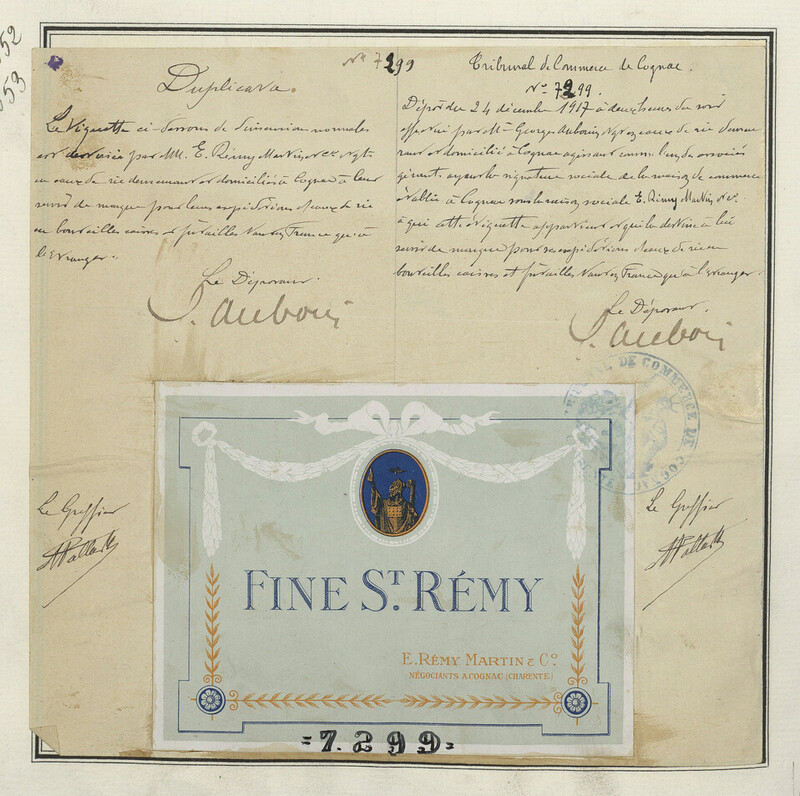 52
53
Duplicata.
La Vignette ci-dessous de dimension normales
est déposée par MM. E. Rémy Martin & Cº Ngts
en eaux de vie demeurant et domiciliés à Cognac à leur
servir de marque pour leurs expéditions d'eaux de vie
en bouteilles caisses et futailles tant en France qu'à
l'Etranger.
Le Déposant
G. Auboin
Nº 7299
Tribunal de Commerce de Cognac.
Nº 7299.
Dépôt du 24 décembre 1917 à deux heures du soir
effectué par Mr Georges Auboin Ngt en eaux de vie demeu
rant et domicilié à Cognac agissant comme l'un des associés
gérants ayant la signature sociale de la maison de commerce
établie à Cognac sous la raison sociale E. Rémy Martin & Cº
à qui cette étiquette appartient et qui la destine à lui
servir de marque pour ses expéditions d'eaux de vie en
bouteilles caisses et futailles tant en France qu'à l'Etranger.
Le Déposant.
G. Auboin
TRIBUNAL DE COMMERCE DE COGNAC
Le Greffier
Le Greffier
FINE ST. RÉMY
E. RÉMY MARTIN & Cº.
NÉGOCIANTS A COGNAC (CHARENTE)
=7.299=